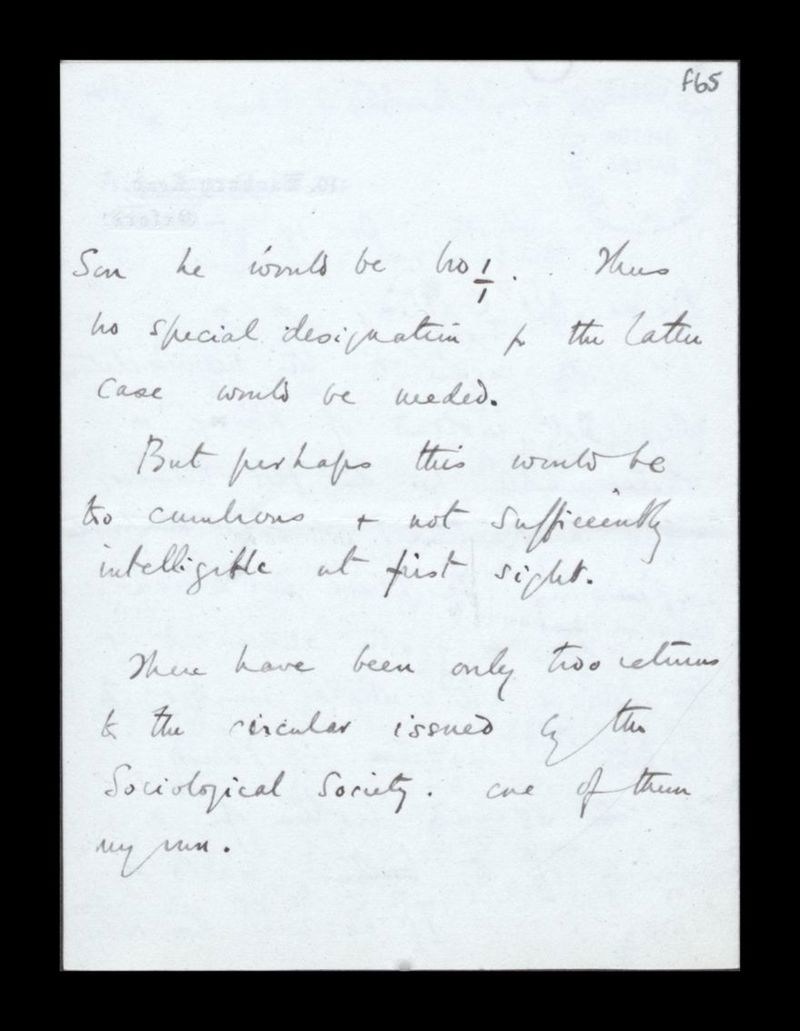 f65
Son he would be bro 1/1. Thus
no special designation for the latter
case would be needed.
But perhaps this would be
too cumbrous + not sufficiently
intelligible at first sight.
There have been only two returns
to the circular issued by the
Sociological Society. one of them
my own.